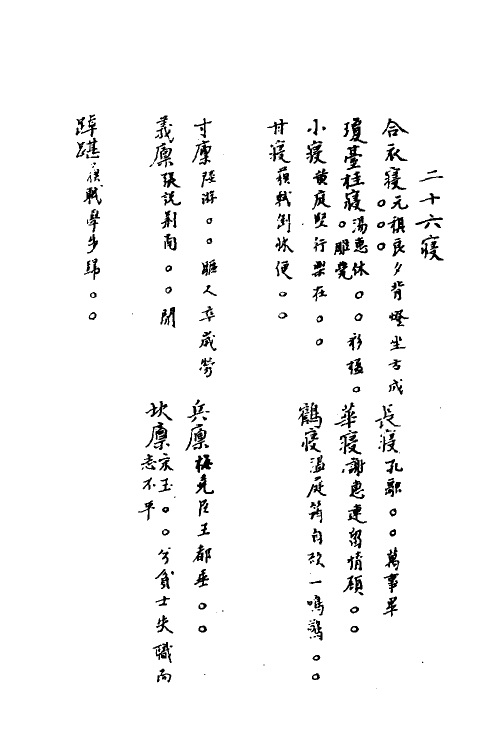 二十六寢
合衣寢元稹良夕背燈坐方成。。。
長寢孔融。。萬事畢
瓊臺桂寢湯惠休。。彩櫨。。雕甍
華寢謝惠連留情顧。。
小寢黄庭堅行樂在。。
鶴寢温庭筠自放一鳴驚。。
甘寢蘇軾倒牀便。。
寸廩陸游。。驅人卒歲勞
兵廩梅堯臣王都垂。。
義廩張説荆南。。開
坎廩宋玉。。兮貧士失職而志不平
踔踸蘇軾學步歸。。